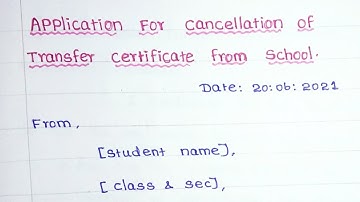 Application For cancellation of
Transfer certificate from School.
Date: 20:06:2021
From,
[student name],
[class & sec],